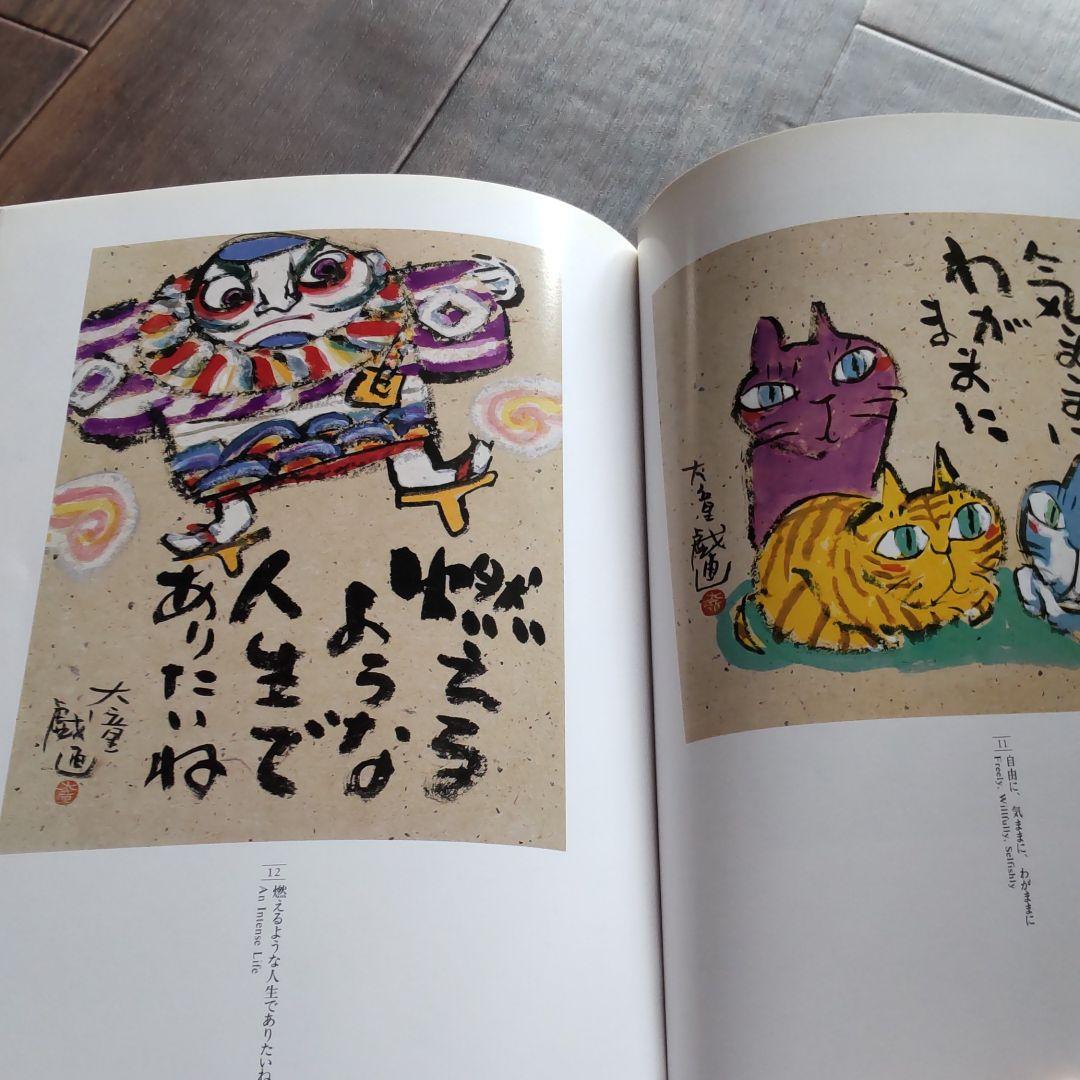 気ままに
わがまま
まに
大童
戯画
11
自由に、気ままに、わがままに
Freely, Willfully, Selfishly
燃える
ような
人生で
ありたいね
大童
戯画
12
燃えるような人生でありたいね
An Intense Life